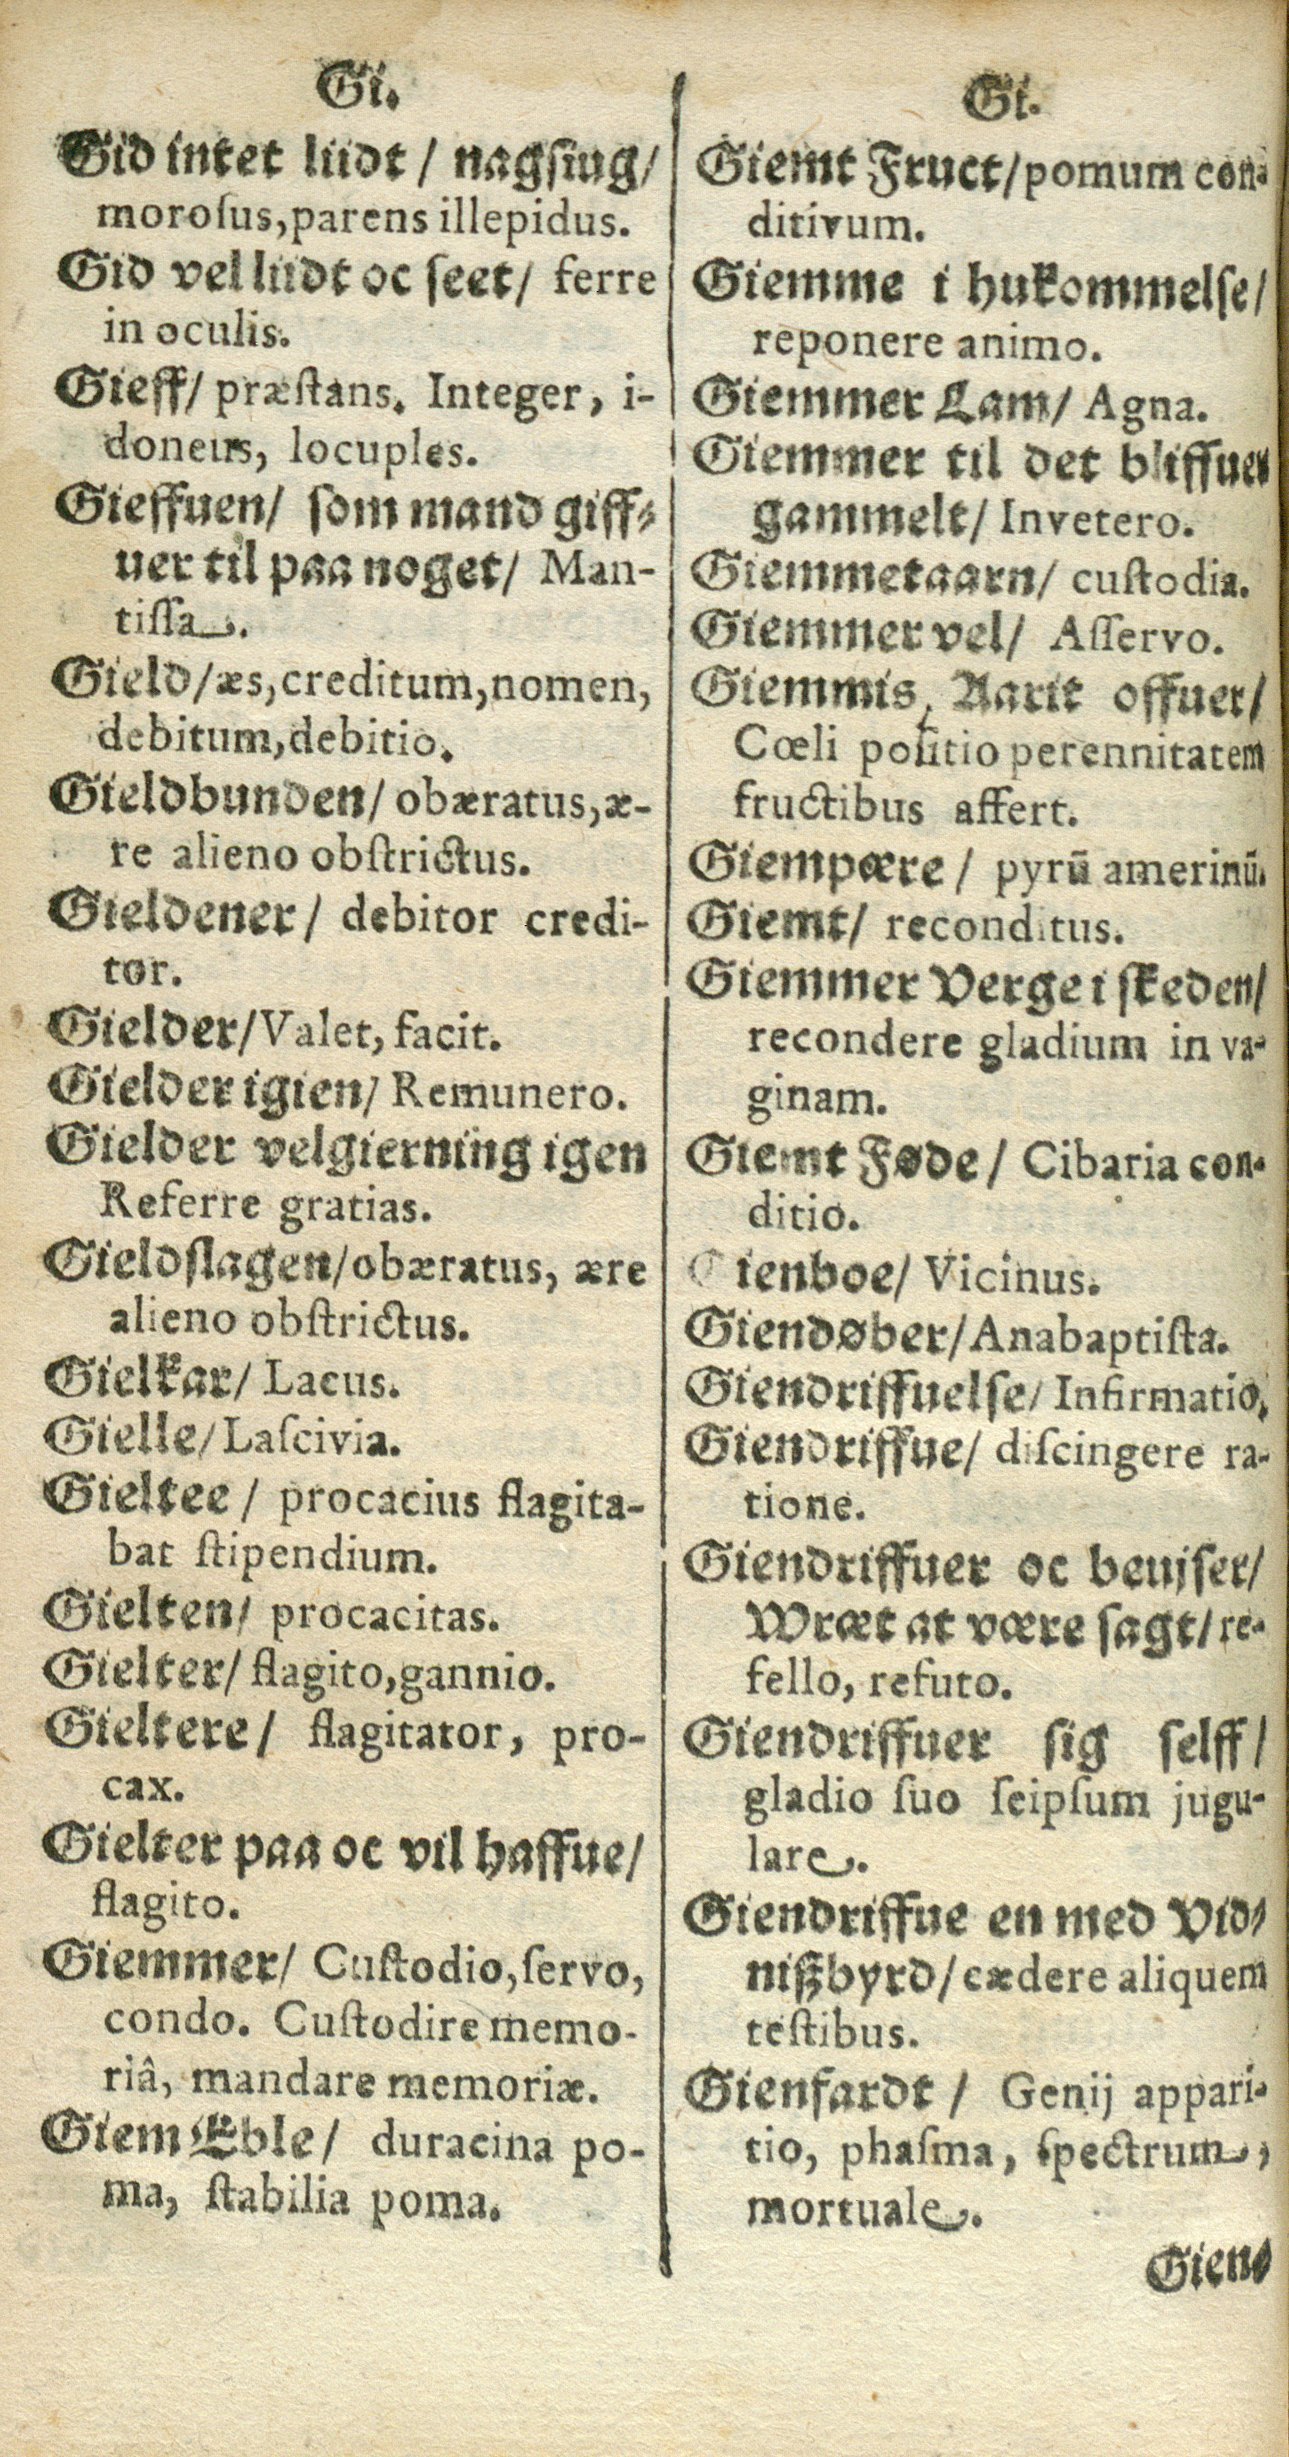 Gi.
Gid intet liidt / nagsiug/
moroſus,parens illepidus.
Gid vel liidt oc ſeet/ ferre
in oculis.
Gieff/ præſtans. Integer, i-
doneus, locuples.
Gieffuen/ ſom mand giff-
uer til paa noget/ Man-
tiſſa.
Gield/æs,creditum,nomen,
debitum,debitio.
Gieldbunden/ obæratus,æ-
re alieno obſtrictus.
Gieldener/ debitor credi-
tor.
Gielder/Valet, facit.
Gielder igien/ Remunero.
Gielder velgierning igen
Referre gratias.
Gieldſlagen/obæratus, ære
alieno obſtrictus.
Gielkar/ Lacus.
Gielle/Laſcivia.
Gieltee / procacius flagita-
bat ſtipendium.
Gielten/ procacitas.
Gielter/ flagito,gannio.
Gieltere/ flagitator, pro-
cax.
Gielter paa oc vil haffue/
flagito.
Giemmer/ Cuſtodio,ſervo,
condo. Cuſtodire memo-
riâ, mandare memoriæ.
Giem Eble/ duracina po-
ma, ſtabilia poma.
Gi.
Giemt Fruct/pomum con-
ditivum.
Giemme i hukommelſe/
reponere animo.
Giemmer Lam/ Agna.
Giemmer til det bliffuer
gammelt/ Invetero.
Giemmetaarn/ cuſtodia.
Giemmer vel/ Aſſervo.
Giemmis, Aarit offuer/
Cœli poſitio perennitatem
fructibus affert.
Giempære / pyrū amerinū.
Giemt/ reconditus.
Giemmer Verge i ſkeden/
recondere gladium in va-
ginam.
Giemt Føde/ Cibaria con-
ditio.
Gienboe/ Vicinus.
Giendøber/Anabaptiſta.
Giendriffuelſe/ Infirmatio.
Giendriffue/ diſcingere ra-
tione.
Giendriffuer oc beuiſer/
Wræt at være ſagt/ re-
fello, refuto.
Giendriffuer ſig ſelff/
gladio ſuo ſeipſum jugu-
lare.
Giendriffue en med Vid-
niſzbyrd/ cædere aliquem
teſtibus.
Gienfardt / Genij appari-
tio, phaſma, ſpectrum,
mortuale.
Gien-